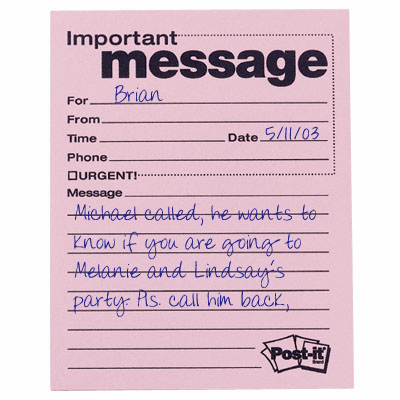 Important
message
For Brian
From
Time Date 5/11/03
Phone
URGENT!
Message
Michael called, he wants to
know if you are going to
Melanie and Lindsay's
party. Pls. call him back,
Post-it®
Brand